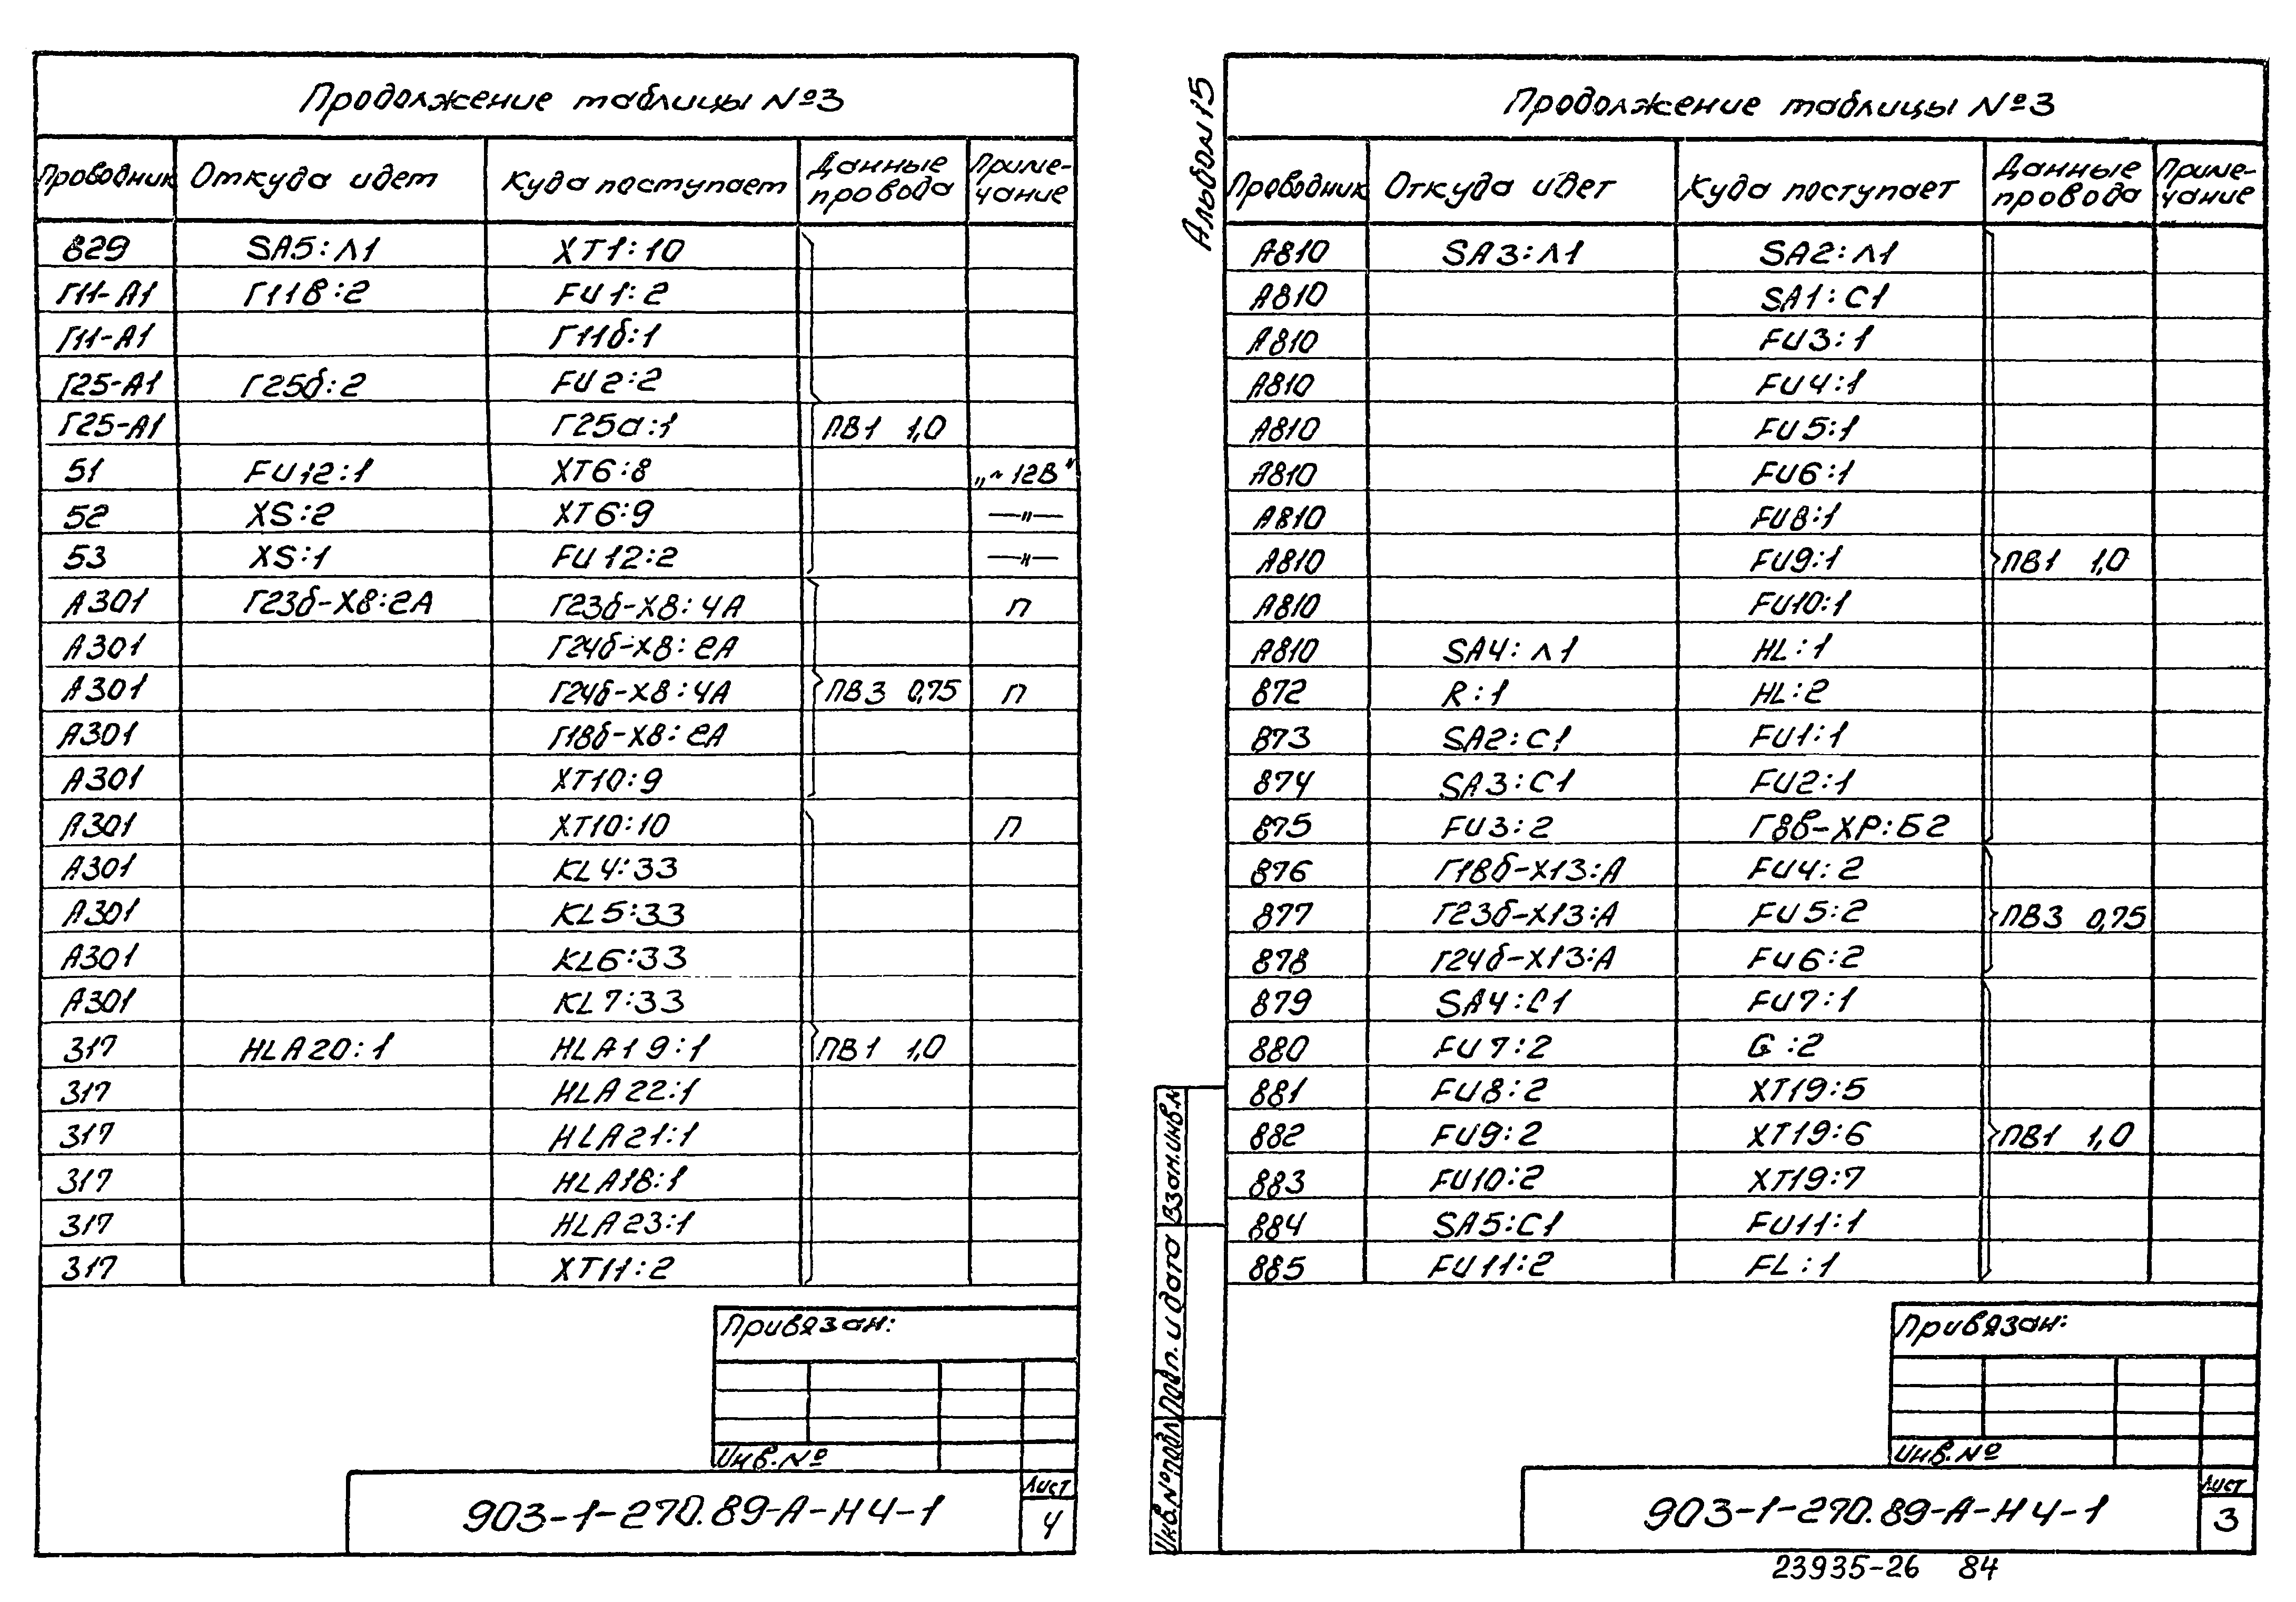 Продолжение таблицы №3
Проводник Откуда идет Куда поступает Данные провода Приме-чание
829 SA5:Л1 XT1:10
Г11-А1 Г11в:2 FU1:2
Г11-А1 Г11б:1
Г25-А1 Г25б:2 FU2:2
Г25-А1 Г25а:1 ПВ1 1,0
51 FU12:1 XT6:8 „~12В"
52 XS:2 XT6:9 —"—
53 XS:1 FU12:2 —"—
А301 Г23б-Х8:2А Г23б-Х8:4А П
А301 Г24б-Х8:2А
А301 Г24б-Х8:4А ПВ3 0,75 П
А301 Г18б-Х8:2А
А301 XT10:9
А301 XT10:10 П
А301 KL4:33
А301 KL5:33
А301 KL6:33
А301 KL7:33
317 HLA20:1 HLA19:1 ПВ1 1,0
317 HLA22:1
317 HLA21:1
317 HLA18:1
317 HLA23:1
317 XT11:2
Привязан:
Инв.№
903-1-270.89-А-Н4-1
Лист
4
Альбом 15
Продолжение таблицы №3
Проводник Откуда идет Куда поступает Данные провода Приме-чание
А810 SA3:Л1 SA2:Л1
А810 SA1:C1
А810 FU3:1
А810 FU4:1
А810 FU5:1
А810 FU6:1
А810 FU8:1
А810 FU9:1 ПВ1 1,0
А810 FU10:1
А810 SA4:Л1 HL:1
872 R:1 HL:2
873 SA2:C1 FU1:1
874 SA3:C1 FU2:1
875 FU3:2 Г8в-ХР:Б2
876 Г18б-Х13:А FU4:2
877 Г23б-Х13:А FU5:2 ПВ3 0,75
878 Г24б-Х13:А FU6:2
879 SA4:C1 FU7:1
880 FU7:2 G:2
881 FU8:2 XT19:5
882 FU9:2 XT19:6 ПВ1 1,0
883 FU10:2 XT19:7
884 SA5:C1 FU11:1
885 FU11:2 FL:1
Взам.инв.№
Подп. и дата
Инв.№ подл.
Привязан:
Инв.№
903-1-270.89-А-Н4-1
Лист
3
23935-26 84